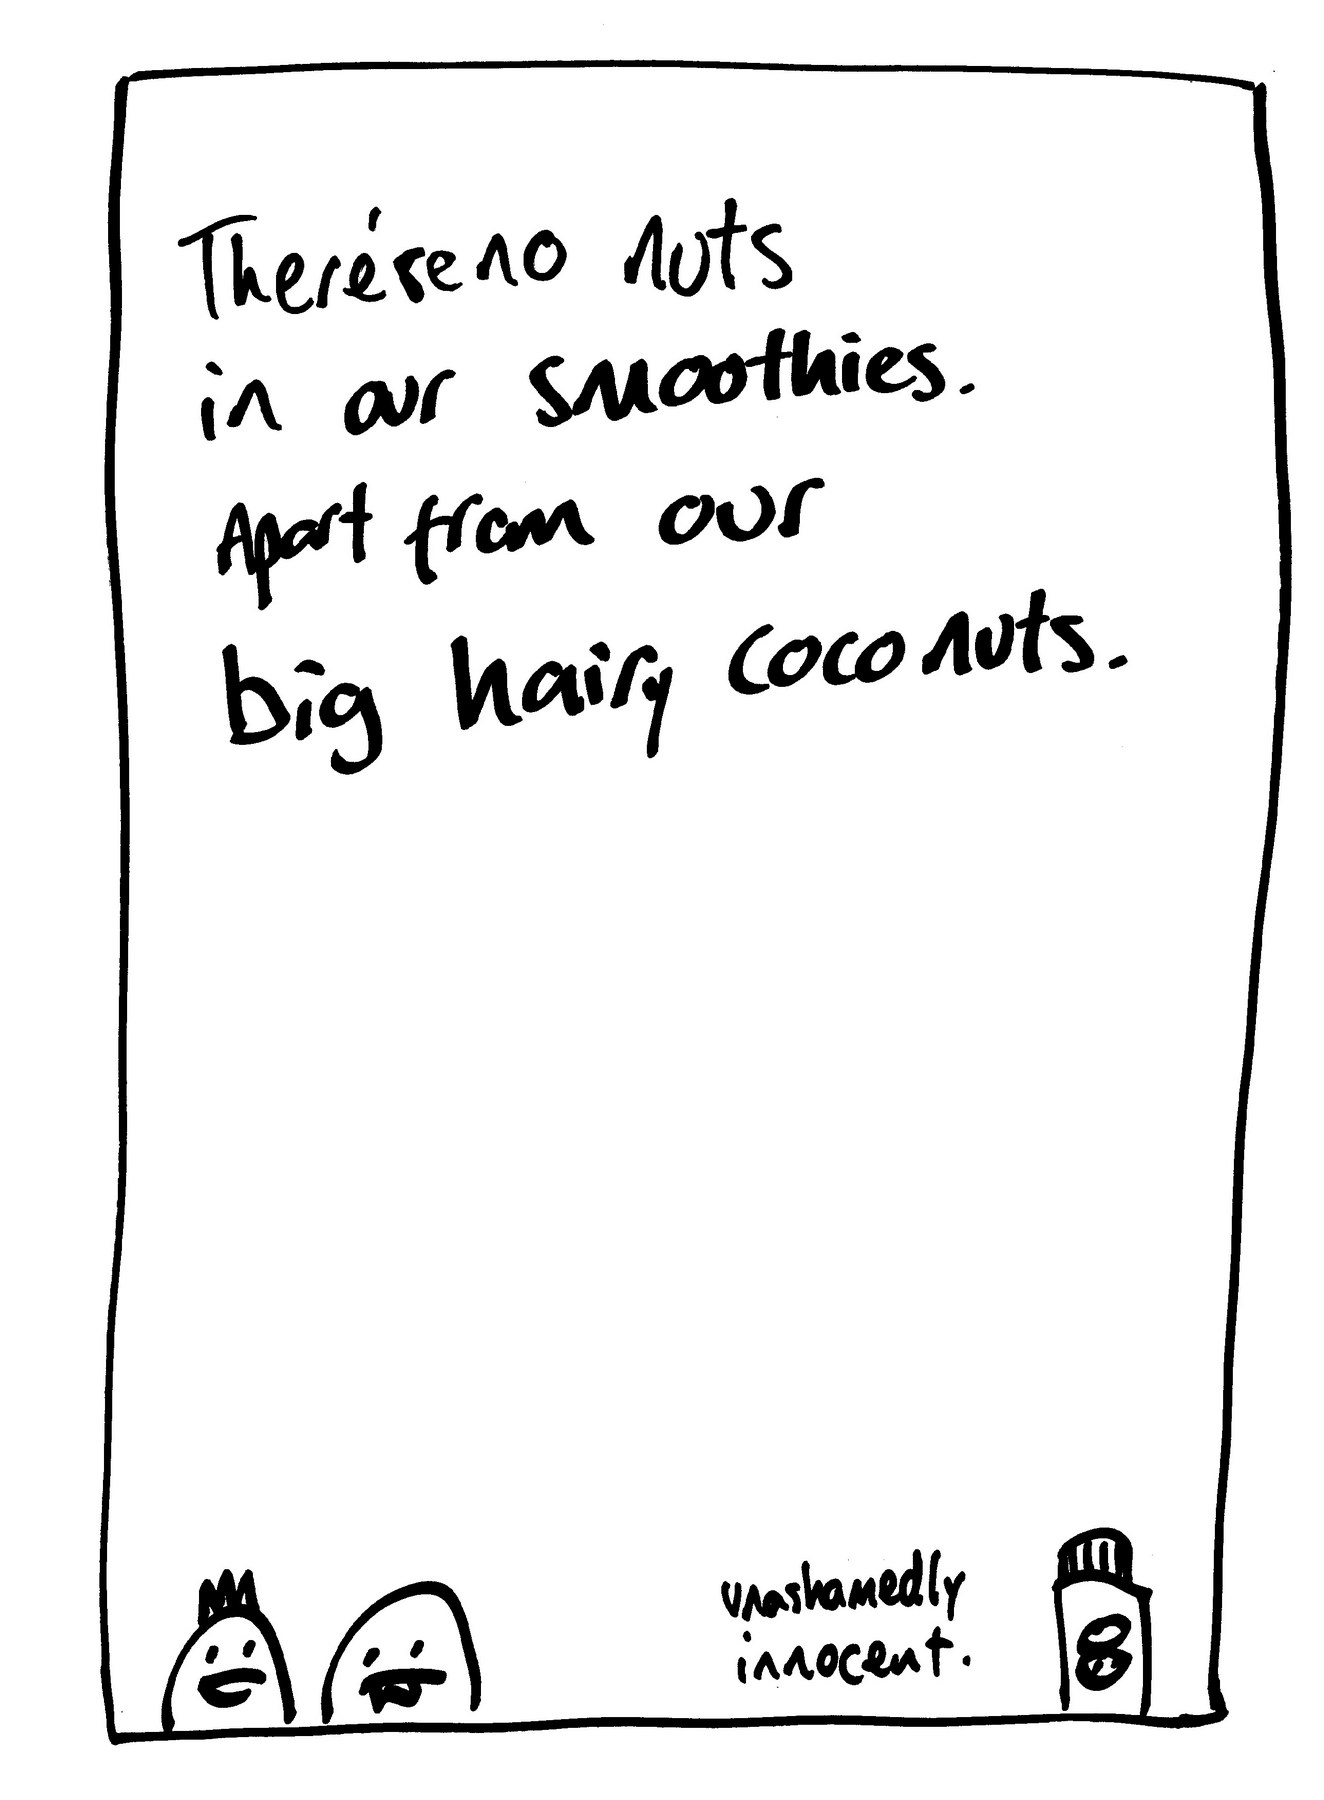 There're no nuts
in our smoothies.
Apart from our
big hairy coconuts.
unashamedly
innocent.